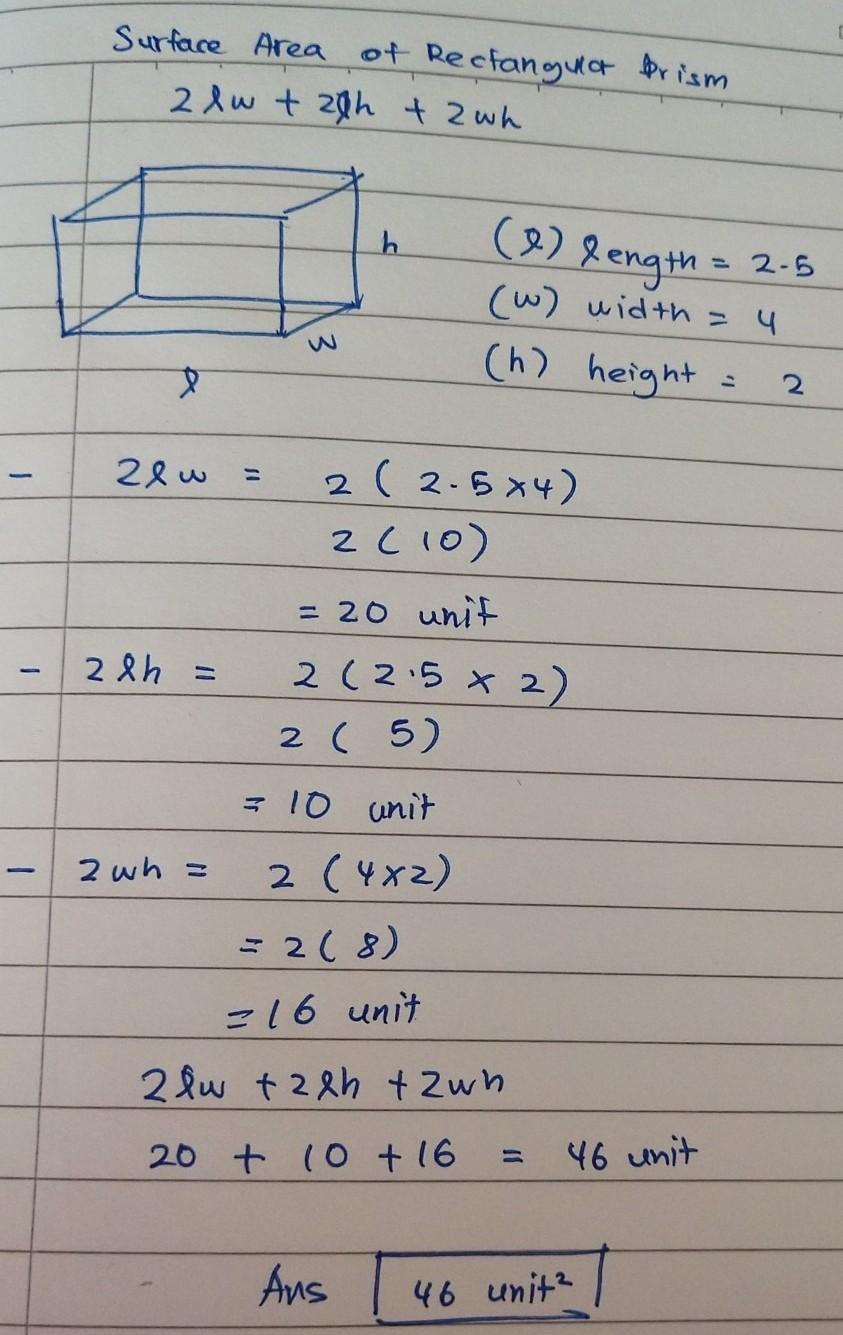 Surface Area of Rectangular Prism
2lw + 2lh + 2wh
h
w
l
(l) length = 2.5
(w) width = 4
(h) height = 2
- 2lw = 2 ( 2.5 x 4)
2 ( 10)
= 20 unit
- 2lh = 2 ( 2.5 x 2)
2 ( 5)
= 10 unit
- 2wh = 2 ( 4x2)
= 2 ( 8)
= 16 unit
2lw + 2lh + 2wh
20 + 10 + 16 = 46 unit
Ans 46 unit²